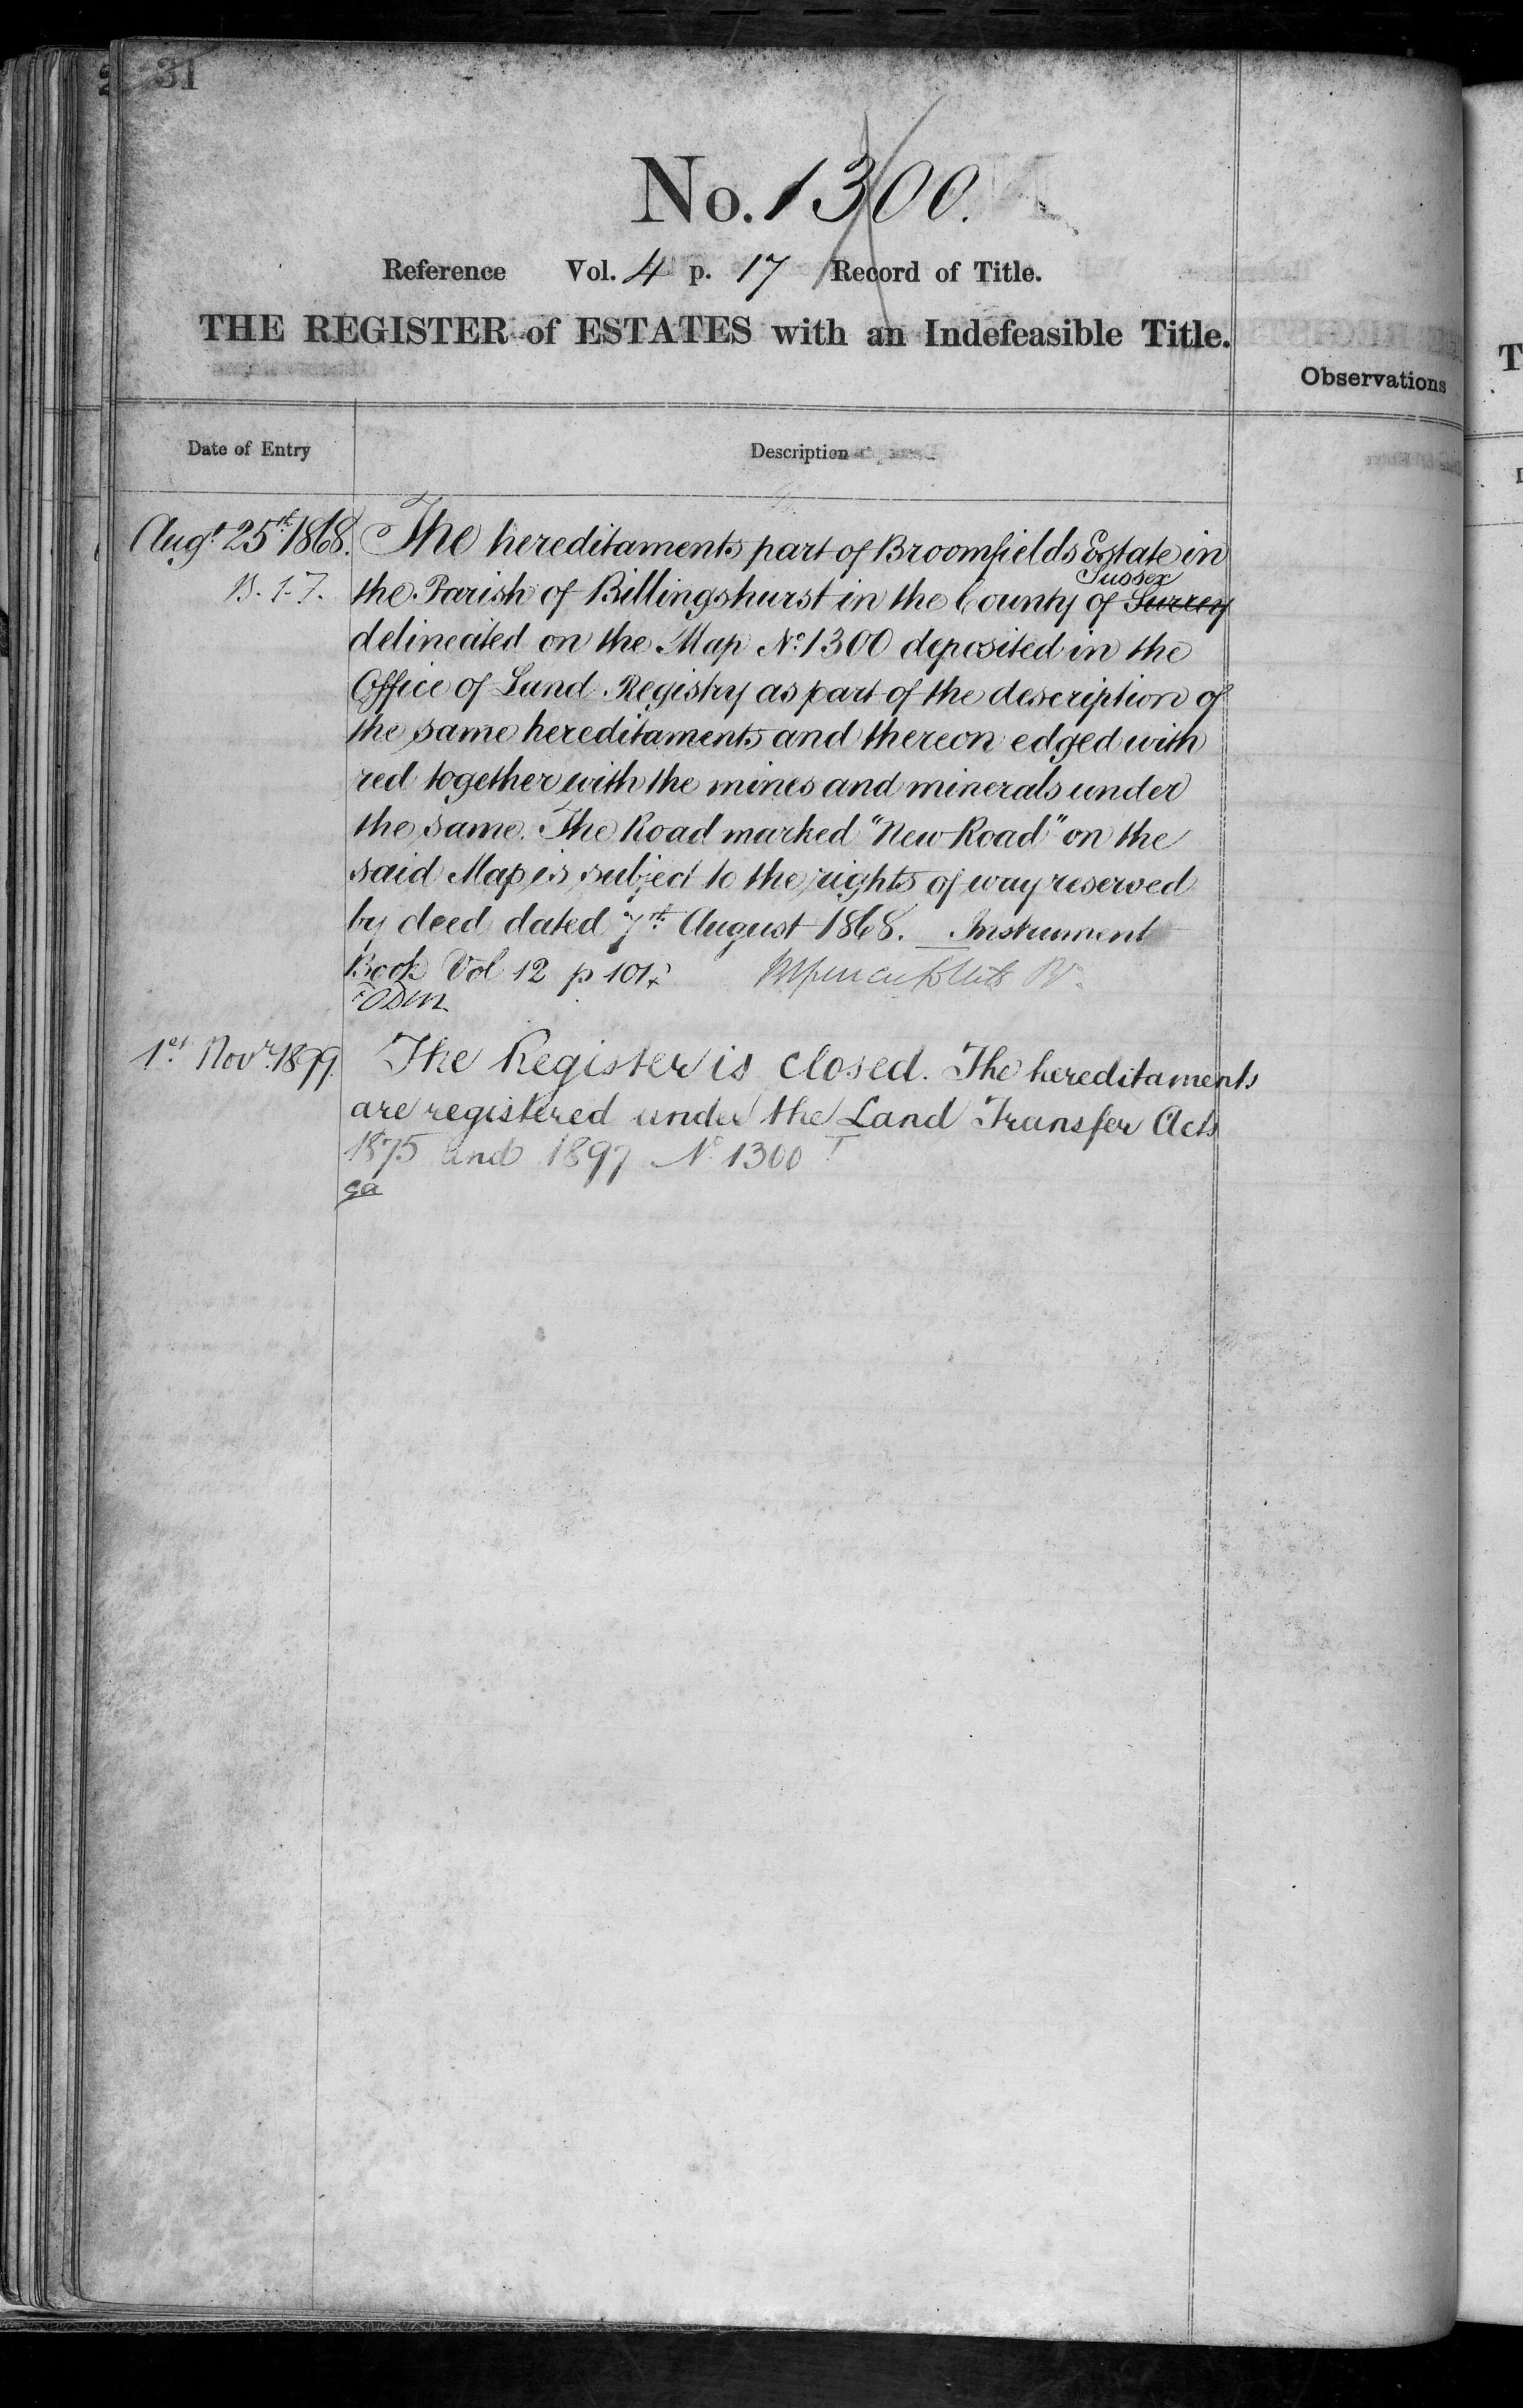 31
No. 1300.
Reference Vol. 4 p. 17 Record of Title.
THE REGISTER of ESTATES with an Indefeasible Title.
Observations
Date of Entry
Description
Augt 25th 1868.
The hereditaments part of Broomfields Estate in
Sussex
the Parish of Billingshurst in the County of Surrey
delineated on the Map No 1300 deposited in the
Office of Land Registry as part of the description of
the same hereditaments and thereon edged with
red together with the mines and minerals under
the same. The Road marked "New Road" on the
said Map is subject to the rights of way reserved
by deed dated 7th August 1868. Instrument
Book Vol 12 p 101
1st Novr. 1899.
The Register is closed. The hereditaments
are registered under the Land Transfer Acts
1875 and 1897 No 1300